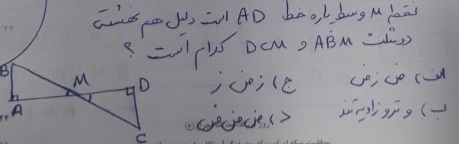 نقطه M وسط پاره خط AD است دلیل هم نهشتی
دو مثلث ABM و DCM کدام است ؟
الف) ض ز ض    ج) ز ض ز
ب) وتر و زاویه تند    د) ض ض ض
B
M
D
A
C